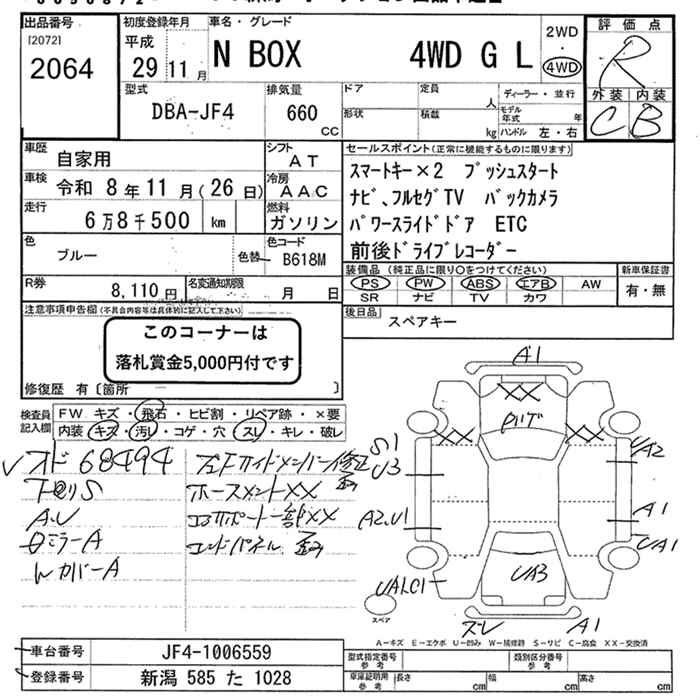 出品番号
[2072]
2064
初度登録年月
平成
29 11 月
車名・グレード
N BOX 4WD G L
2WD
・
4WD
評価点
R
外装 内装
C B
型式
DBA-JF4
排気量
660 CC
ドア
定員
人
ディーラー・並行
形状
積載
kg
モデル年式
年
ハンドル 左・右
車歴
自家用
シフト
AT
車検
令和 8年 11月 (26日)
冷房
AAC
走行
6万8千500 km
燃料
ガソリン
色
ブルー
色替
色コード
B618M
R券
8,110 円
名変通知期限
月 日
セールスポイント(正常に機能するものに限ります)
スマートキー×2 プッシュスタート
ナビ、フルセグTV バックカメラ
パワースライドドア ETC
前後ドライブレコーダー
装備品(純正品に限り○をつけてください)
PS PW ABS エアB AW
SR ナビ TV カワ
新車保証書
有・無
後日品
スペアキー
注意事項申告欄(不具合内容等は具体的に記入して下さい)
このコーナーは
落札賞金5,000円付です
修復歴 有〔箇所 〕
検査員
記入欄
FW キズ・飛石・ヒビ割・リペア跡・×要
内装 キズ・汚レ・コゲ・穴・スレ・キレ・破レ
オド 68494
下廻りS
A.U
ミラーA
カバーA
ホースメントXX
コアサポート一部XX
エンドパネル
A1
XX
XX
XX
S1
U3
UA2
A2.U1
A1
UA1
UA3
スレ
A1
スペア
A-キズ E-エクボ U-凹み W-補修跡 S-サビ C-腐食 XX-交換済
車台番号
JF4-1006559
登録番号
新潟 585 た 1028
型式指定番号
参考
類別区分番号
参考
車庫証明用
参考
長さ cm
幅 cm
高さ cm